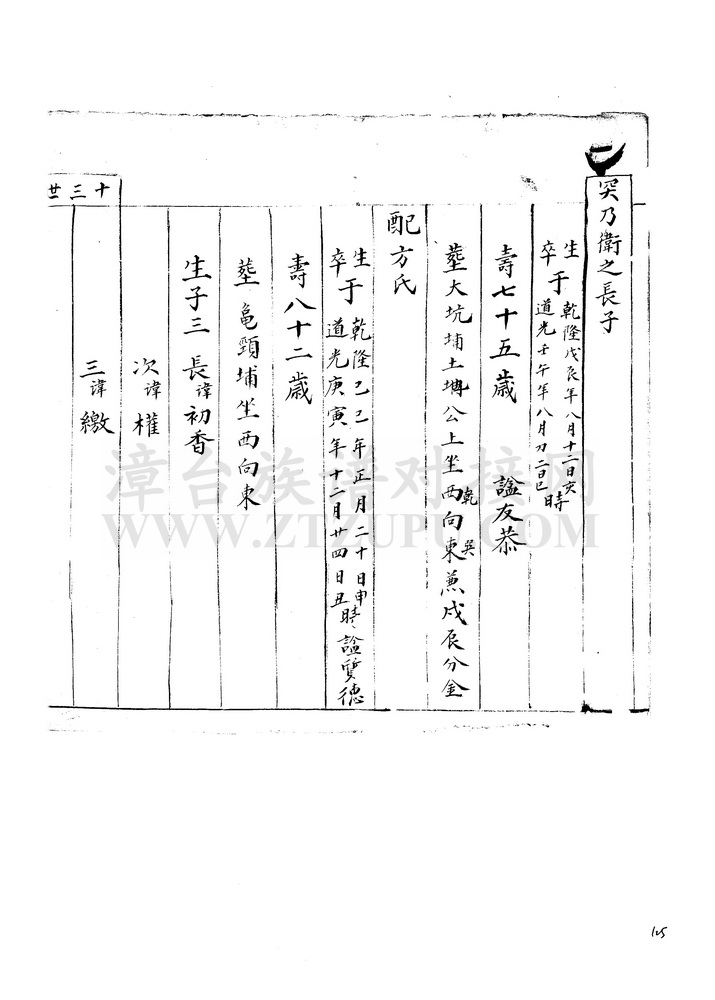 突乃衛之長子
生卒于乾隆戊辰年八月十二日亥道光壬午年八月初二日巳時
壽七十五歲 諡友恭
塟大坑埔土塼公上坐西向東兼戌辰分金
乾 巽
配方氏
生卒于乾隆己巳年正月二十日申道光庚寅年十二月廿四日丑時 諡質德
壽八十二歲
塟龜頸埔坐西向東
生子三 長諱初香
次諱權
三諱繳
十三世
漳台族谱对接网
WWW.ZTZUPU.COM
125